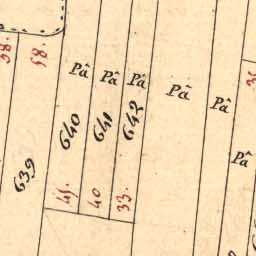 58.
58.
Pâ
Pâ
Pâ
Pâ
Pâ
Pâ
640
641
642
639
45.
40
33.